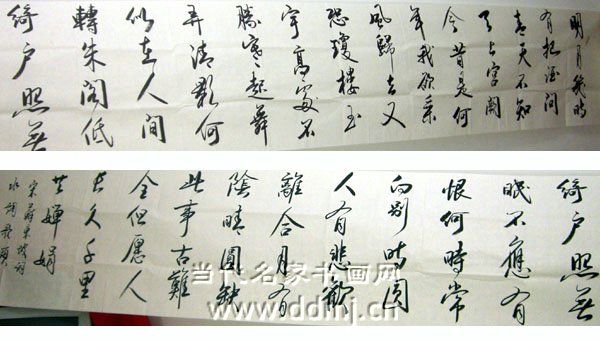 明月幾時
有把酒問
青天不知
天上宮闕
今昔是何
年我欲乘
風歸去又
恐瓊樓玉
宇高處不
勝寒起舞
弄清影何
似在人間
轉朱閣低
綺戶照無
綺戶照無
眠不應有
恨何時常
向別时圆
人有悲歡
離合月有
陰晴圓缺
此事古難
全但愿人
長久千里
共嬋娟
宋蘇東坡詞
水調歌頭
当代名家书画网
www.ddmj.cn